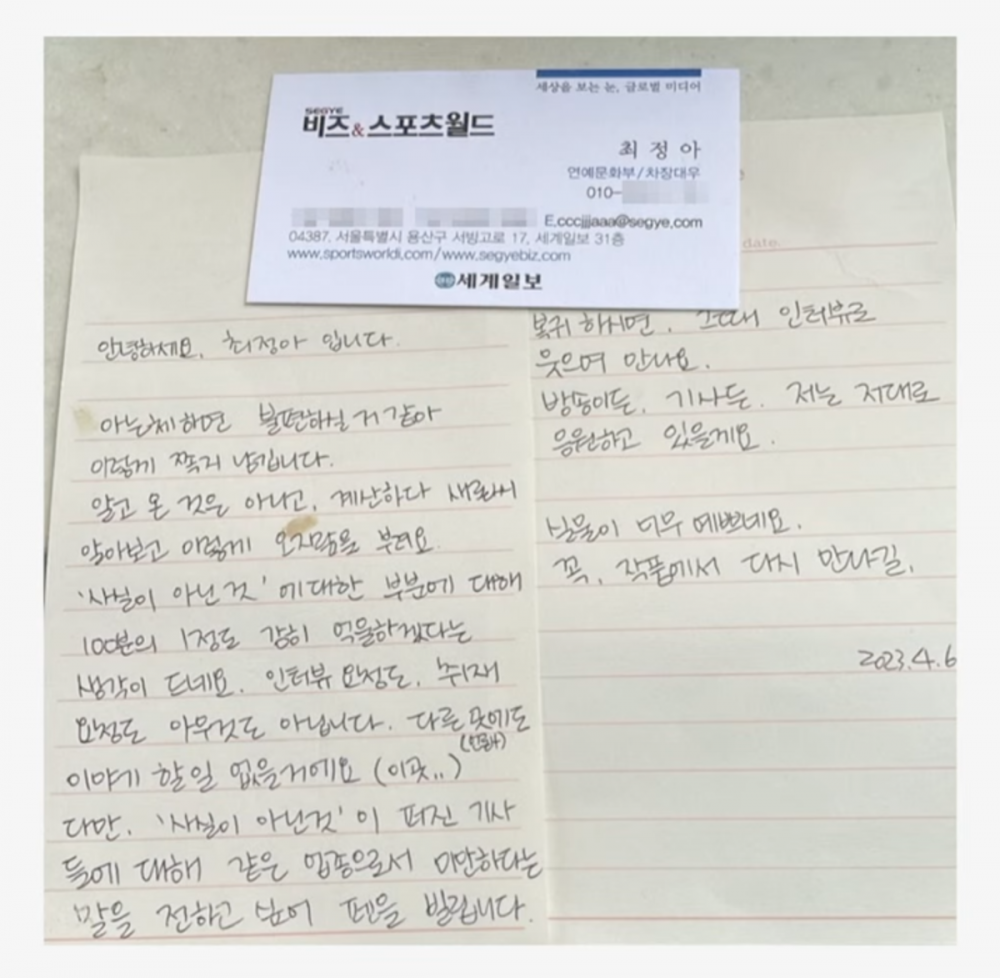 세상을 보는 눈, 글로벌 미디어
SEGYE
비즈&스포츠월드
최정아
연예문화부/차장대우
010-
E.cccjjjaaa@segye.com
04387. 서울특별시 용산구 서빙고로 17, 세계일보 31층
www.sportsworldi.com/www.segyebiz.com
세계일보
date.
안녕하세요. 최정아 입니다.
아는체하면 불편하실거 같아
이렇게 쪽지 남깁니다.
알고 온 것은 아니고, 계산하다 새로나서
알아보고 이렇게 오지랖을 부려요.
'사실이 아닌 것'에 대한 부분에 대해
100분의 1정도 감히 억울하겠다는
생각이 드네요. 인터뷰 요청도, 취재
요청도 아무것도 아닙니다. 다른 곳에도
(언론사)
이야기 할일 없을거에요 (이곳..)
다만, '사실이 아닌것'이 퍼진 기사
들에 대해 같은 업종으로서 미안하다는
말을 전하고 싶어 펜을 빌립니다.
복귀 하시면, 그때 인터뷰로
웃으며 만나요.
방송이든, 기사든, 저는 저대로
응원하고 있을게요.
실물이 너무 예쁘네요.
꼭, 작품에서 다시 만나길,
2023.4.6